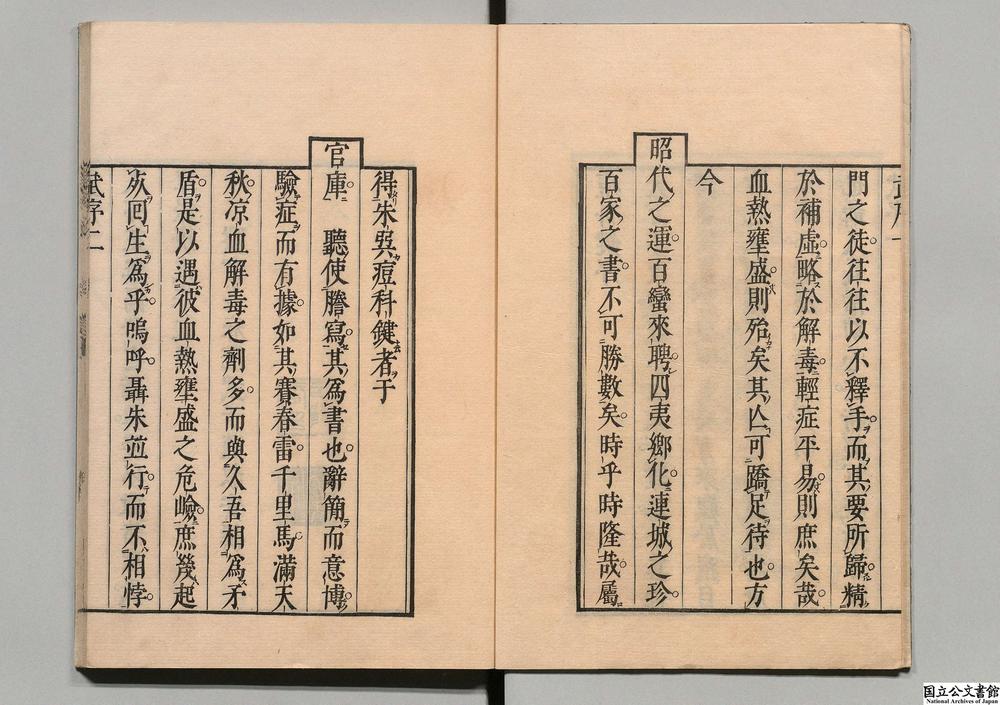 門之徒往往以不釋手而其要所歸精
於補虛略於解毒輕症平易則庶矣哉
血熱壅盛則殆矣其亾可蹻足待也方
今
昭代之運百蠻來聘四夷鄉化連城之珍
百家之書不可勝數矣時乎時隆哉屬
得朱巽痘科鍵者于
官庫 聽使謄寫其爲書也辭簡而意博
驗症而有據如其賽春雷千里馬滿天
秋凉血解毒之劑多而與久吾相爲矛
盾是以遇彼血熱壅盛之危嶮庶幾起
死回生爲乎嗚呼聶朱並行而不相悖
武序二
国立公文書館
National Archives of Japan